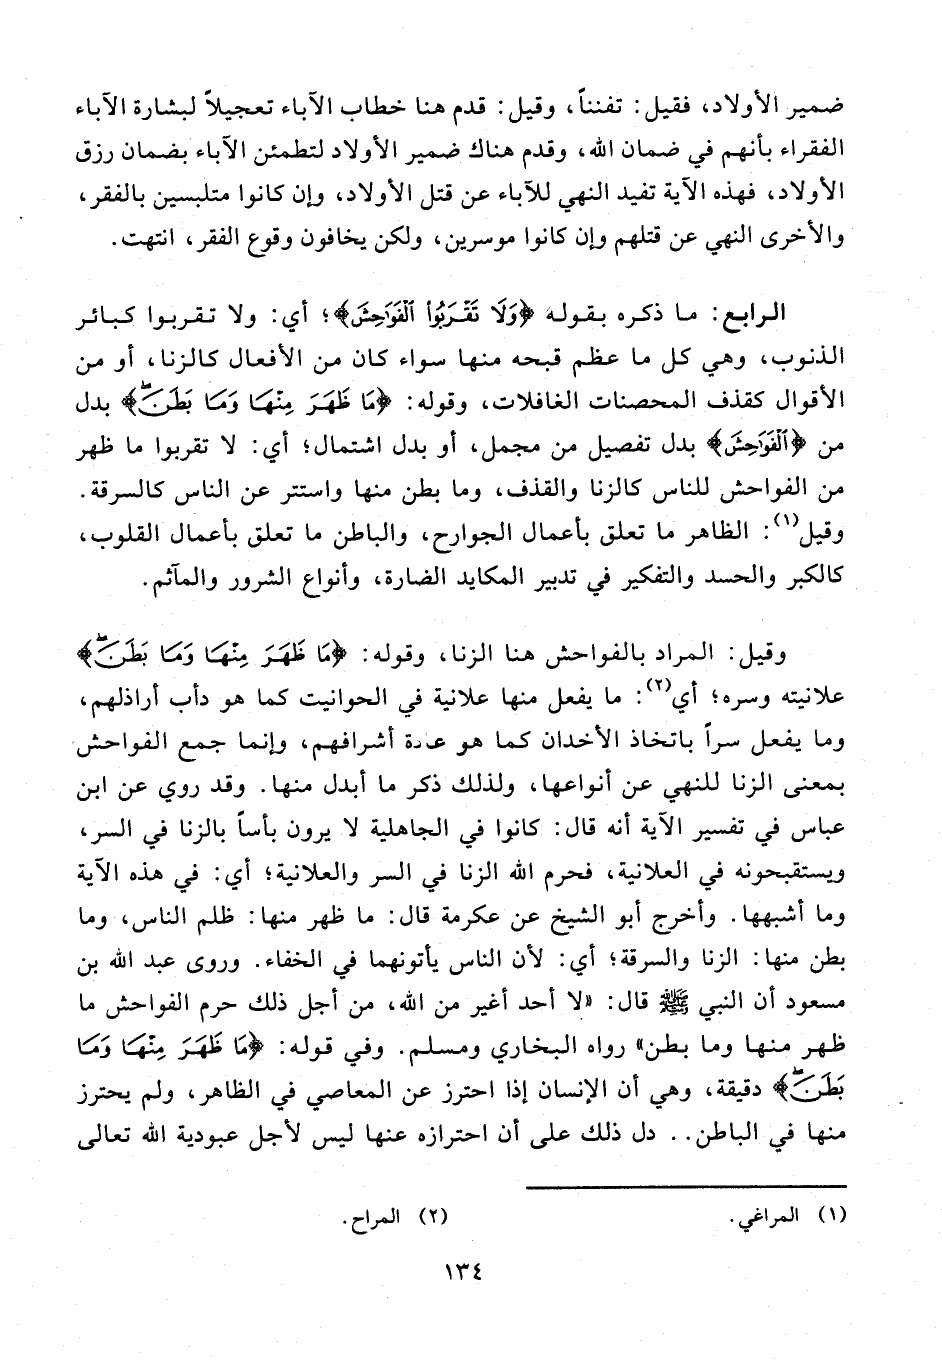 ضمير الأولاد، فقيل: تفنناً، وقيل: قدم هنا خطاب الآباء تعجيلاً لبشارة الآباء
الفقراء بأنهم في ضمان الله، وقدم هناك ضمير الأولاد لتطمئن الآباء بضمان رزق
الأولاد، فهذه الآية تفيد النهي للآباء عن قتل الأولاد، وإن كانوا متلبسين بالفقر،
والأخرى النهي عن قتلهم وإن كانوا موسرين، ولكن يخافون وقوع الفقر، انتهت.
الرابع: ما ذكره بقوله ﴿وَلَا تَقْرَبُوا۟ ٱلْفَوَٰحِشَ﴾؛ أي: ولا تقربوا كبائر
الذنوب، وهي كل ما عظم قبحه منها سواء كان من الأفعال كالزنا، أو من
الأقوال كقذف المحصنات الغافلات، وقوله: ﴿مَا ظَهَرَ مِنْهَا وَمَا بَطَنَۖ﴾ بدل
من ﴿ٱلْفَوَٰحِشَ﴾ بدل تفصيل من مجمل، أو بدل اشتمال؛ أي: لا تقربوا ما ظهر
من الفواحش للناس كالزنا والقذف، وما بطن منها واستتر عن الناس كالسرقة.
وقيل(١): الظاهر ما تعلق بأعمال الجوارح، والباطن ما تعلق بأعمال القلوب،
كالكبر والحسد والتفكير في تدبير المكايد الضارة، وأنواع الشرور والمآثم.
وقيل: المراد بالفواحش هنا الزنا، وقوله: ﴿مَا ظَهَرَ مِنْهَا وَمَا بَطَنَۖ﴾
علانيته وسره؛ أي(٢): ما يفعل منها علانية في الحوانيت كما هو دأب أراذلهم،
وما يفعل سراً باتخاذ الأخدان كما هو عادة أشرافهم، وإنما جمع الفواحش
بمعنى الزنا للنهي عن أنواعها، ولذلك ذكر ما أبدل منها. وقد روي عن ابن
عباس في تفسير الآية أنه قال: كانوا في الجاهلية لا يرون بأساً بالزنا في السر،
ويستقبحونه في العلانية، فحرم الله الزنا في السر والعلانية؛ أي: في هذه الآية
وما أشبهها. وأخرج أبو الشيخ عن عكرمة قال: ما ظهر منها: ظلم الناس، وما
بطن منها: الزنا والسرقة؛ أي: لأن الناس يأتونهما في الخفاء. وروى عبد الله بن
مسعود أن النبي ﷺ قال: «لا أحد أغير من الله، من أجل ذلك حرم الفواحش ما
ظهر منها وما بطن» رواه البخاري ومسلم. وفي قوله: ﴿مَا ظَهَرَ مِنْهَا وَمَا
بَطَنَۖ﴾ دقيقة، وهي أن الإنسان إذا احترز عن المعاصي في الظاهر، ولم يحترز
منها في الباطن.. دل ذلك على أن احترازه عنها ليس لأجل عبودية الله تعالى
(١) المراغي. (٢) المراح.
١٣٤